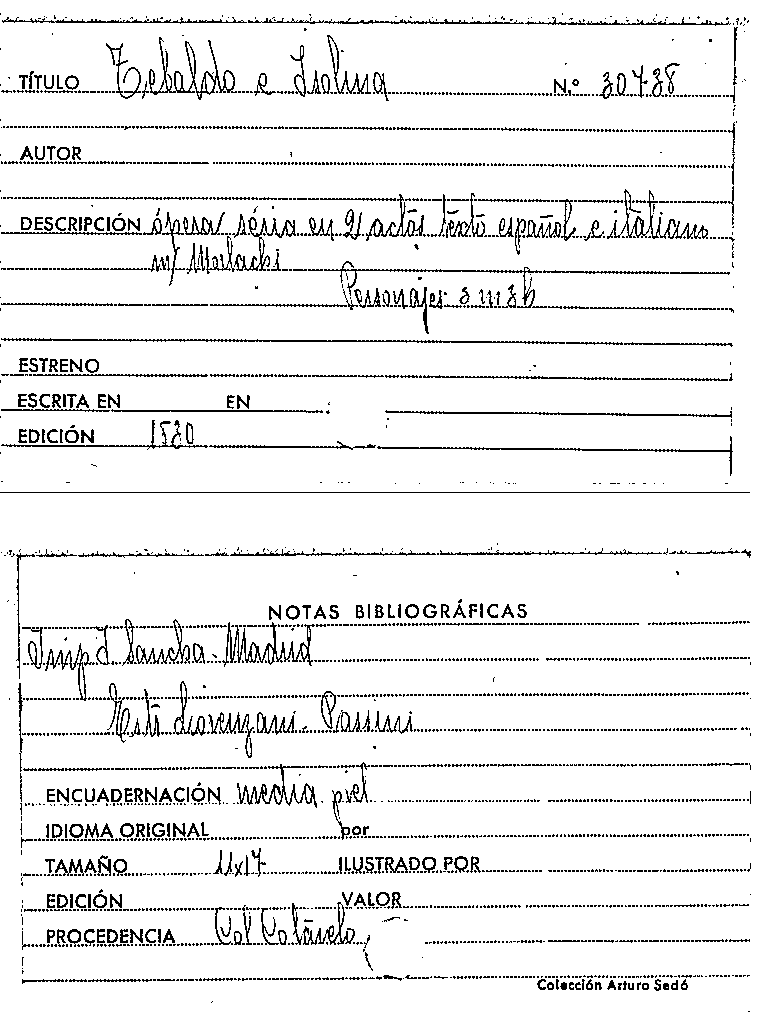 TÍTULO Tebaldo e Isolina N.º 30738
AUTOR
DESCRIPCIÓN ópera séria en 2 actos texto español e italiano
m/ Morlachi
Personajes 3 m 3 h
ESTRENO
ESCRITA EN EN
EDICIÓN 1830
NOTAS BIBLIOGRÁFICAS
Imp I Sancha - Madrid
Estr Lorenzani - Passini
ENCUADERNACIÓN media piel
IDIOMA ORIGINAL por
TAMAÑO 11x17 ILUSTRADO POR
EDICIÓN VALOR
PROCEDENCIA Col Cotarelo
Colección Arturo Sedó